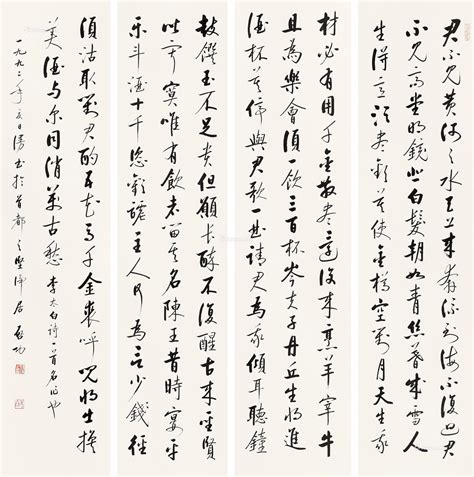 君不見黃河之水天上來奔流到海不復迴君
不見高堂明鏡悲白髮朝如青絲暮成雪人
生得意須盡歡莫使金樽空對月天生我
材必有用千金散盡還復來烹羊宰牛
且為樂會須一飲三百杯岑夫子丹丘生將進
酒杯莫停與君歌一曲請君為我傾耳聽鐘
鼓饌玉不足貴但願長醉不復醒古來聖賢
皆寂寞唯有飲者留其名陳王昔時宴平
樂斗酒十千恣歡謔主人何為言少錢徑
須沽取對君酌五花馬千金裘呼兒將出換
美酒與爾同消萬古愁 李太白詩一首
一九九二年 日漫書於首都之堅淨居 啟功